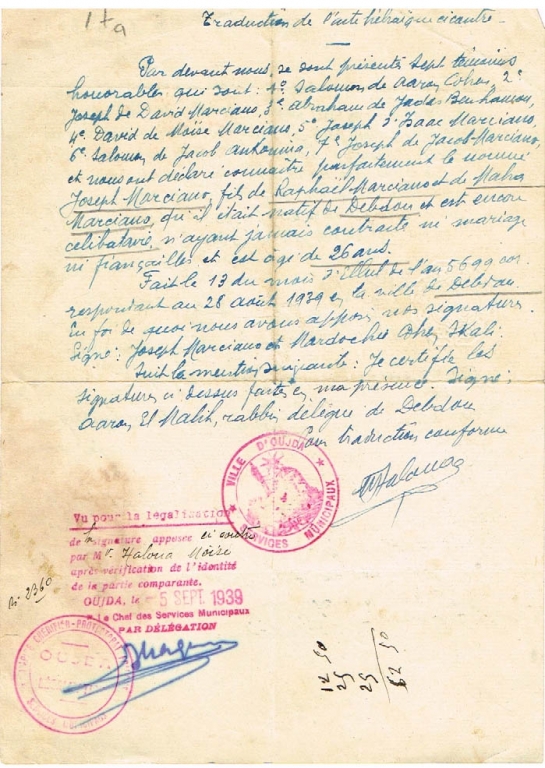 17a
Traduction de l'acte hébraïque ci contre
Par devant nous, se sont présentés sept témoins
honorables qui sont: 1º. Salomon de Aaron Cohen 2º
Joseph de David Marciano, 3º Abraham de
4º David de Moïse Marciano, 5º Joseph d'Isaac Marciano,
6º Salomon de Jacob 7º Joseph de Jacob Marciano,
et nous ont déclaré connaître parfaitement le nommé
Joseph Marciano, fils de Raphaël Marciano et de
Marciano, qu'il était natif de Debdou et est encore
célibataire, n'ayant jamais contracté ni mariage
ni fiançailles et est âgé de 26 ans.
Fait le 13 du mois d'Ellul de l'an 5699 cor-
respondant au 28 août 1939 en la ville de Debdou.
En foi de quoi nous avons apposé nos signatures.
Signé: Joseph Marciano et Mardochée Cohen Skali
Suit la mention suivante: Je certifie les
signatures ci dessus faites en ma présence. Signé:
Aaron El Malih, rabbin délégué de Debdou
Pour traduction conforme
VILLE D'OUJDA
SERVICES MUNICIPAUX
Vu pour la légalisation
de la signature apposée ci contre
par Mr. Haloua Moïse
après vérification de l'identité
de la partie comparante.
Nº 2360
OUJDA, le - 5 SEPT. 1939
Le Chef des Services Municipaux
PAR DÉLÉGATION
OUJDA
12 50
25
25
62 50